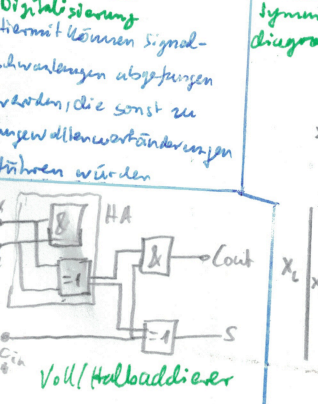 Digitalisierung
Hiermit können Signal-
schwankungen abgefangen
werden, die sonst zu
ungewollten wertänderungen
führen würden
Symm
diagra
X
& HA
=1
& Cout
=1 S
Cin
Voll/Halbaddierer
X₁ X